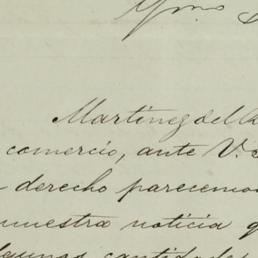 Ymo
Martinez del
comercio, ante V.
derecho parecemos
nuestra noticia q
algunas cantidades